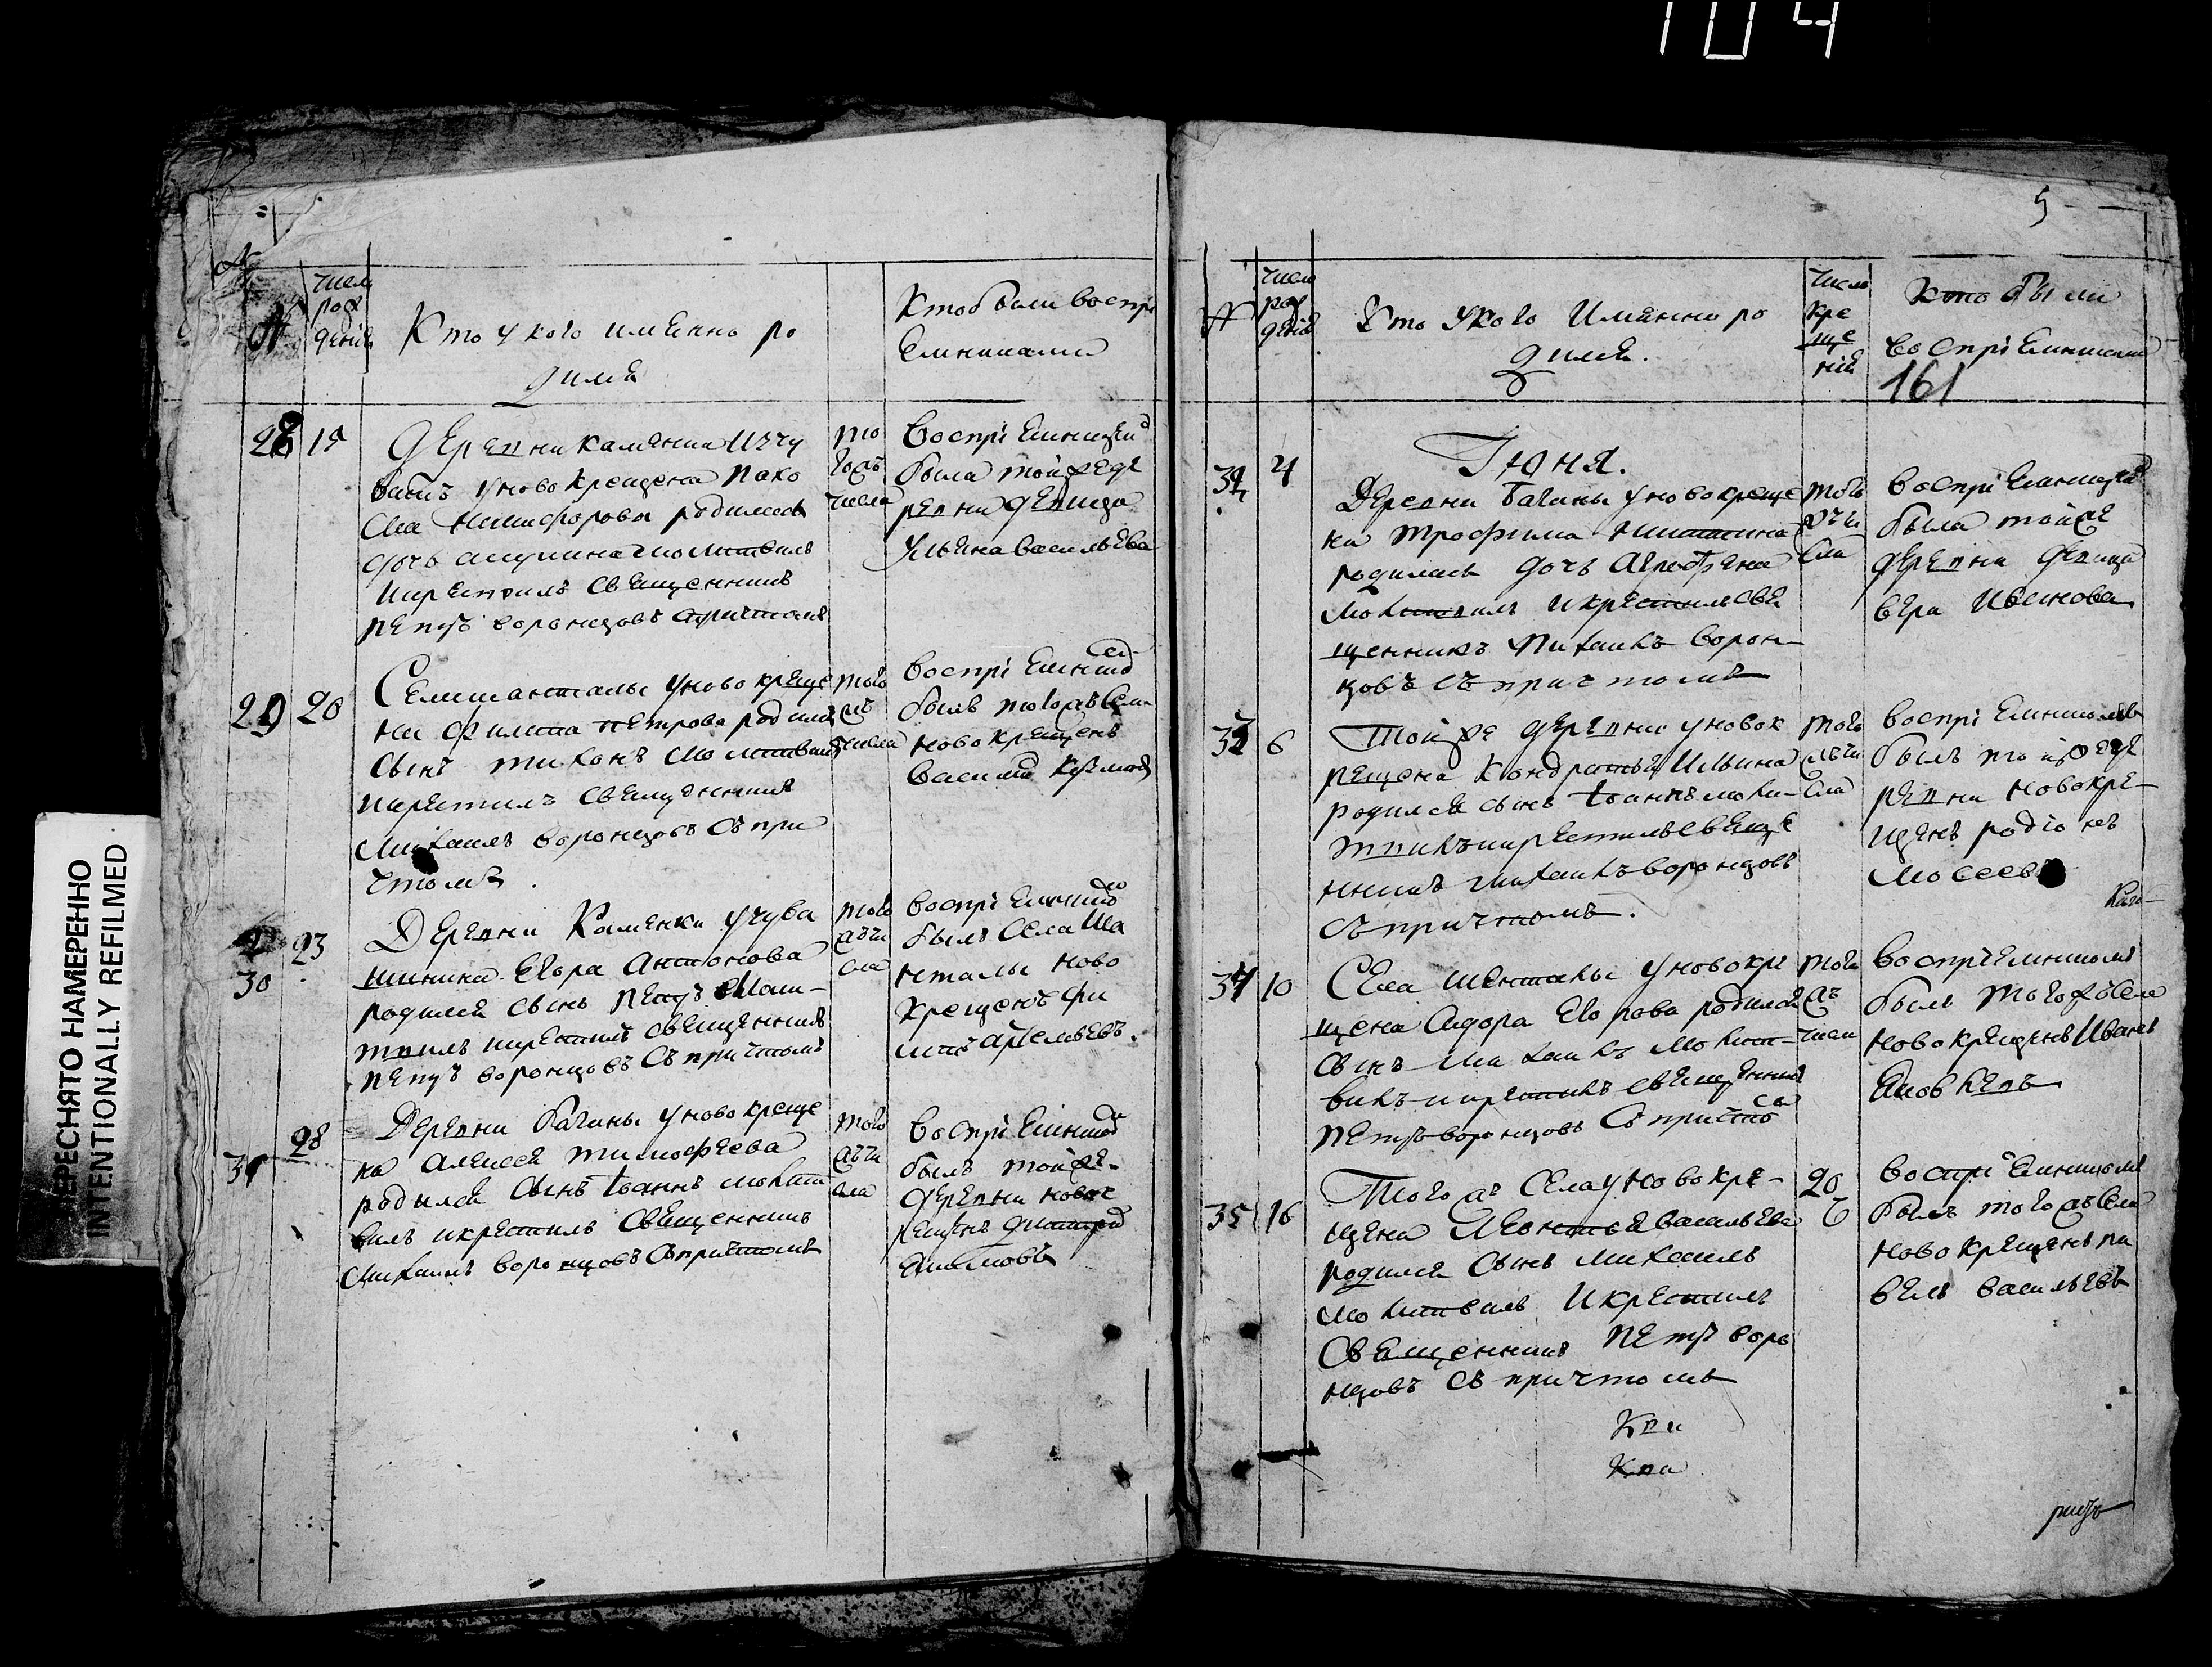 104
ПЕРЕСНЯТО НАМЕРЕННО
INTENTIONALLY REFILMED
№
числ
рож
денія
Кто у кого имѣнно ро
дился
Кто были воспрі
емниками
28
Деревни Каменки
вашъ у новокрещена
Никифорова родилась
дочь
и крестилъ священникъ
Петръ Воронцовъ с причтомъ
того жъ
числа
воспріемницей
была той же де
ревни девица
Ульяна Васильева
29
20
Села Шанталы у новокреще
на Филипа Петрова родился
сынъ Тихонъ молитвилъ
и крестилъ священникъ
Михаилъ Воронцовъ съ при
чтомъ
того
жъ
числа
воспріемником
былъ того жъ села
новокрещенъ
Василій Козминъ
30
23
Деревни Каменки у чува
шинина Егора Антонова
родился сынъ Петръ моли
твилъ и крестилъ священникъ
Петръ Воронцовъ съ причтомъ
того
жъ чи
сла
воспріемником
былъ села Ша
нталы ново
крещенъ Фи
липъ Артемьевъ.
31
28
Деревни Багана у новокреще
на Алексея Тимофеева
родился сынъ Іоаннъ молит
вилъ и крестилъ священникъ
Михаилъ Воронцовъ съ причтомъ
того
жъ чи
сла
воспріемником
былъ той же
деревни новок
рещенъ Дмитрей
5
числ
рож
денія
Кто у кого имянно ро
дился.
числ
кре
ще
нія
Кто были
воспріемниками
161
Іюня.
4
Деревни Баганы у новокреще
на Трофима Никитина
родилась дочь Агрофена
молитвилъ и крестилъ свя
щенникъ Михаилъ Ворон
цовъ съ причтомъ
того
жъ чи
сла
воспріемницей
была той же
деревни девица
Вера Иванова
6
Той же деревни у новок
рещена Кондратья Ильина
родился сынъ Іоаннъ моли
твилъ и крестилъ свяще
нникъ Михаилъ Воронцовъ
съ причтомъ.
того
жъ чи
сла
воспріемникомъ
былъ той же де
ревни новокре
щенъ Родіонъ
Мосеевъ
34
10
Села Шенталы у новокре
щена Сидора Егорова родился
сынъ Михаилъ молит
вилъ и крестилъ священникъ
Петръ Воронцовъ съ причто
того
жъ
числа
воспріемникомъ
былъ того жъ села
новокрещенъ Иванъ
Яковлевъ
35
16
Того жъ села у новокре
щена Леонтья Васильева
родился сынъ Михаилъ
молитвилъ и крестилъ
священникъ Петръ Воро
нцовъ съ причтомъ
20
воспріемникомъ
былъ того жъ села
новокрещенъ Па
велъ Васильевъ